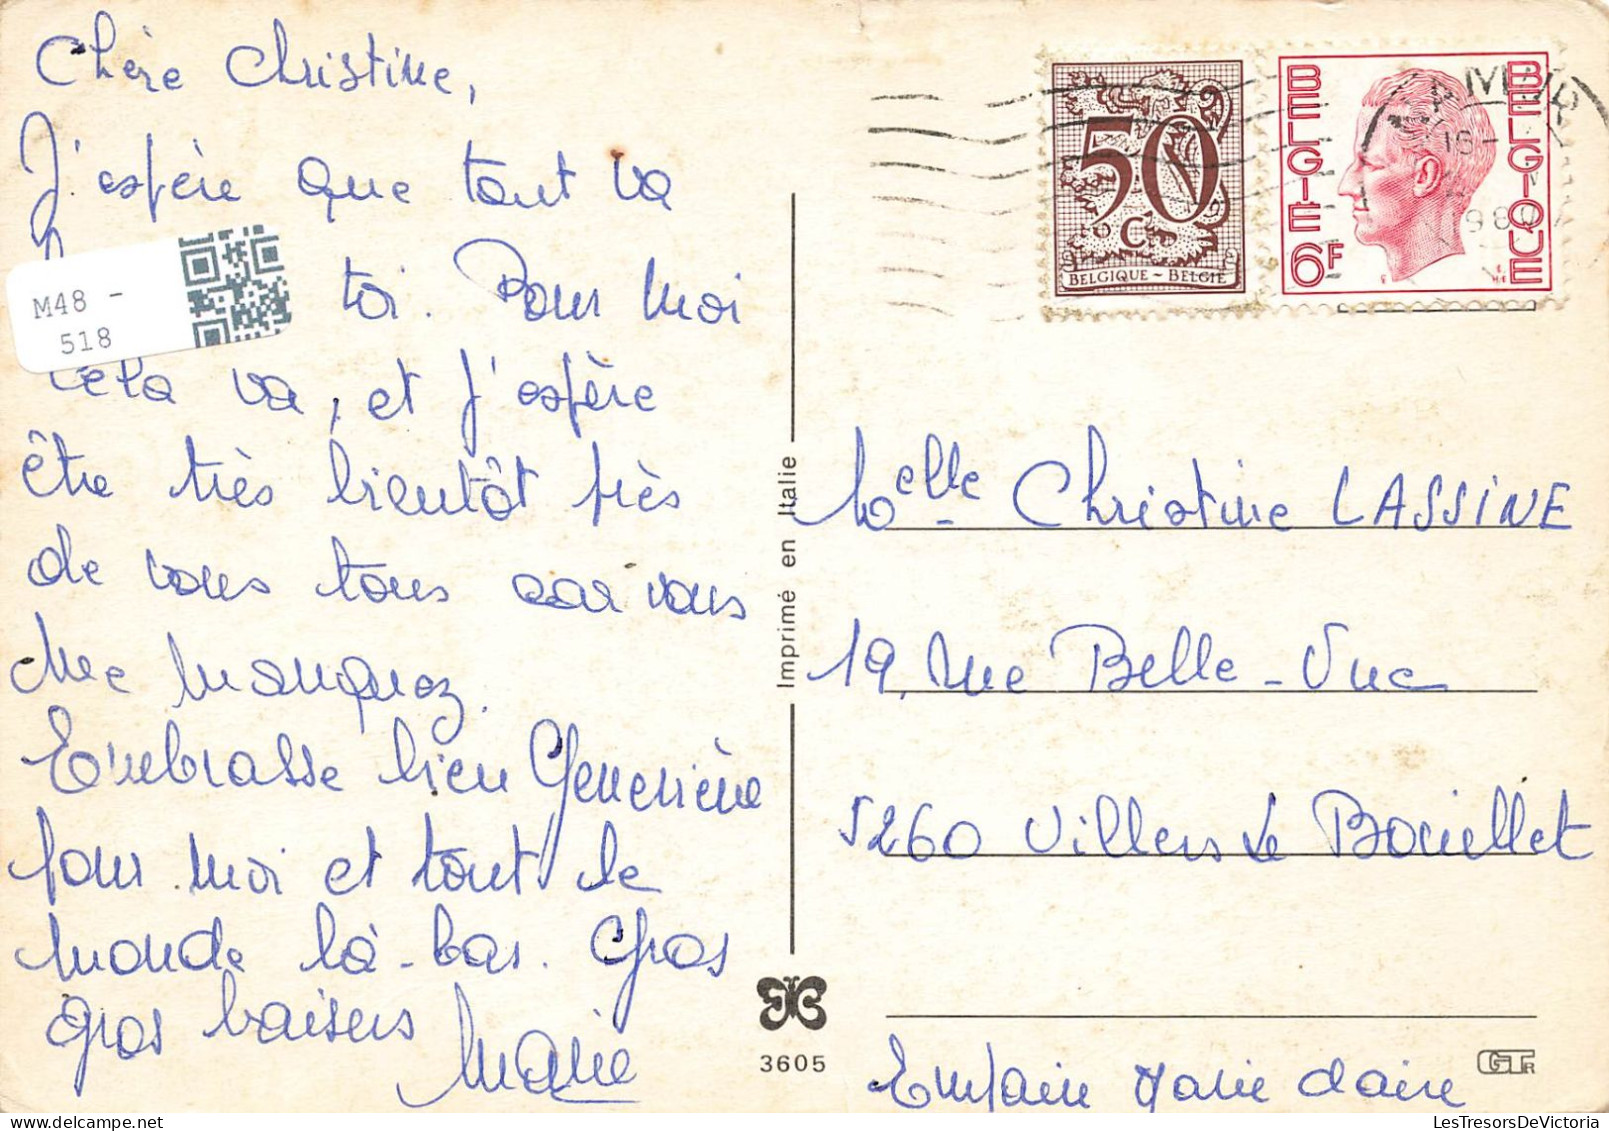 Chère Christine,
J'espère que tout va
toi. Pour moi
cela va, et j'espère
être très bientôt près
de vous tous car vous
me manquez.
Embrasse bien Geneviève
pour moi et tout le
monde là-bas. Gros
gros baisers
Marie
M48 -
518
Imprimé en Italie
3605
50
C
BELGIQUE - BELGIË
BELGIE 6F BELGIQUE
NAMUR
16-
1980
Melle Christine LASSINE
19, rue Belle-Vue
5260 Villers Le Bouillet
Enfain Marie claire
GTR
LesTresorsDeVictoria.com